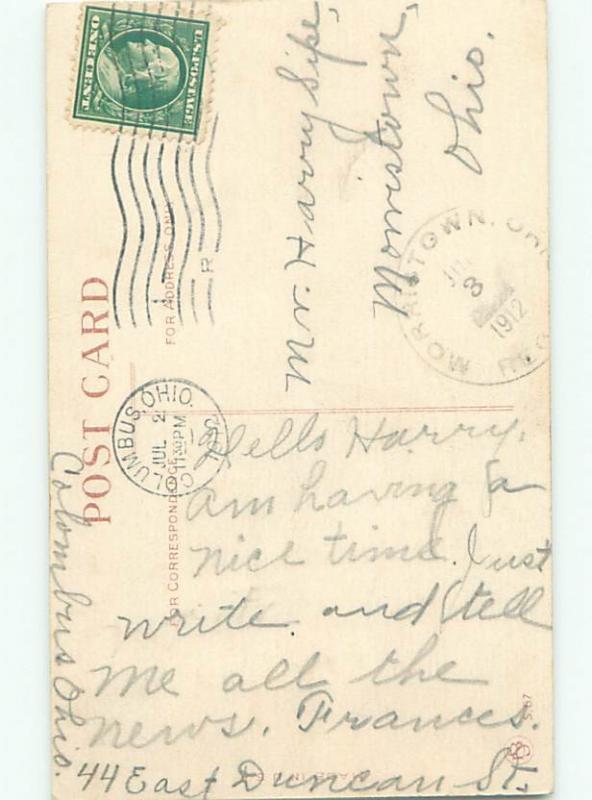 U.S. POSTAGE
ONE CENT
POST CARD
FOR ADDRESS ONLY
FOR CORRESPONDENCE
R
COLUMBUS, OHIO.
JUL 2
1130PM
1912
MORRISTOWN, OHIO
3
1912
REC'D
Mr. Harry Sipe,
Morristown,
Ohio.
Hello Harry,
am having a
nice time. Just
write and tell
me all the
news. Frances.
44 East Duncan St.
Colombus Ohio.
S. 67